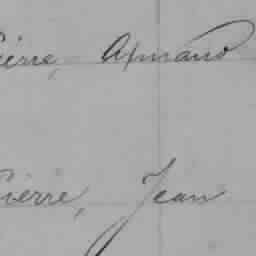 ierre, Armand
Pierre, Jean